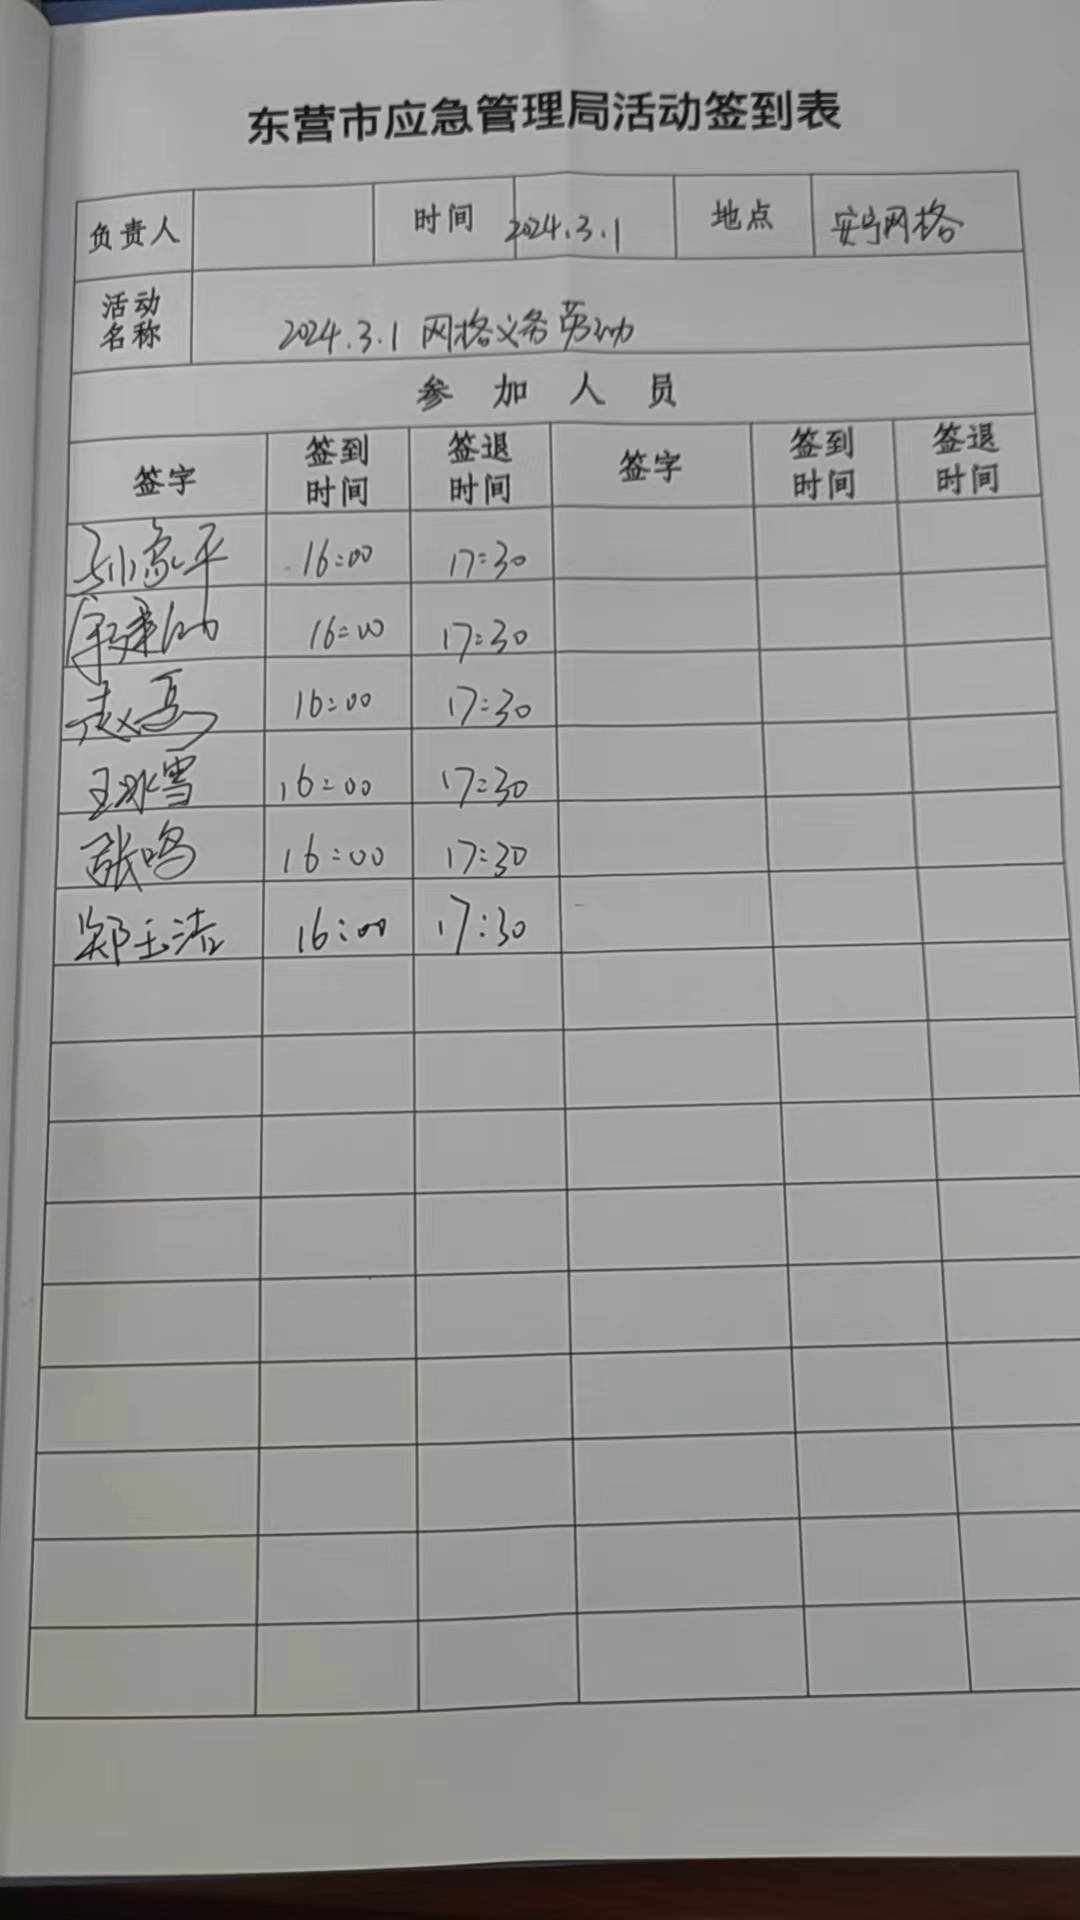 东营市应急管理局活动签到表
负责人 时间 2024.3.1 地点 安宁网格
活动名称 2024.3.1 网格义务劳动
参加人员
签字 签到时间 签退时间 签字 签到时间 签退时间
孙象平 16:00 17:30
16:00 17:30
赵亮 16:00 17:30
王冰雪 16:00 17:30
张鸣 16:00 17:30
郑玉洁 16:00 17:30